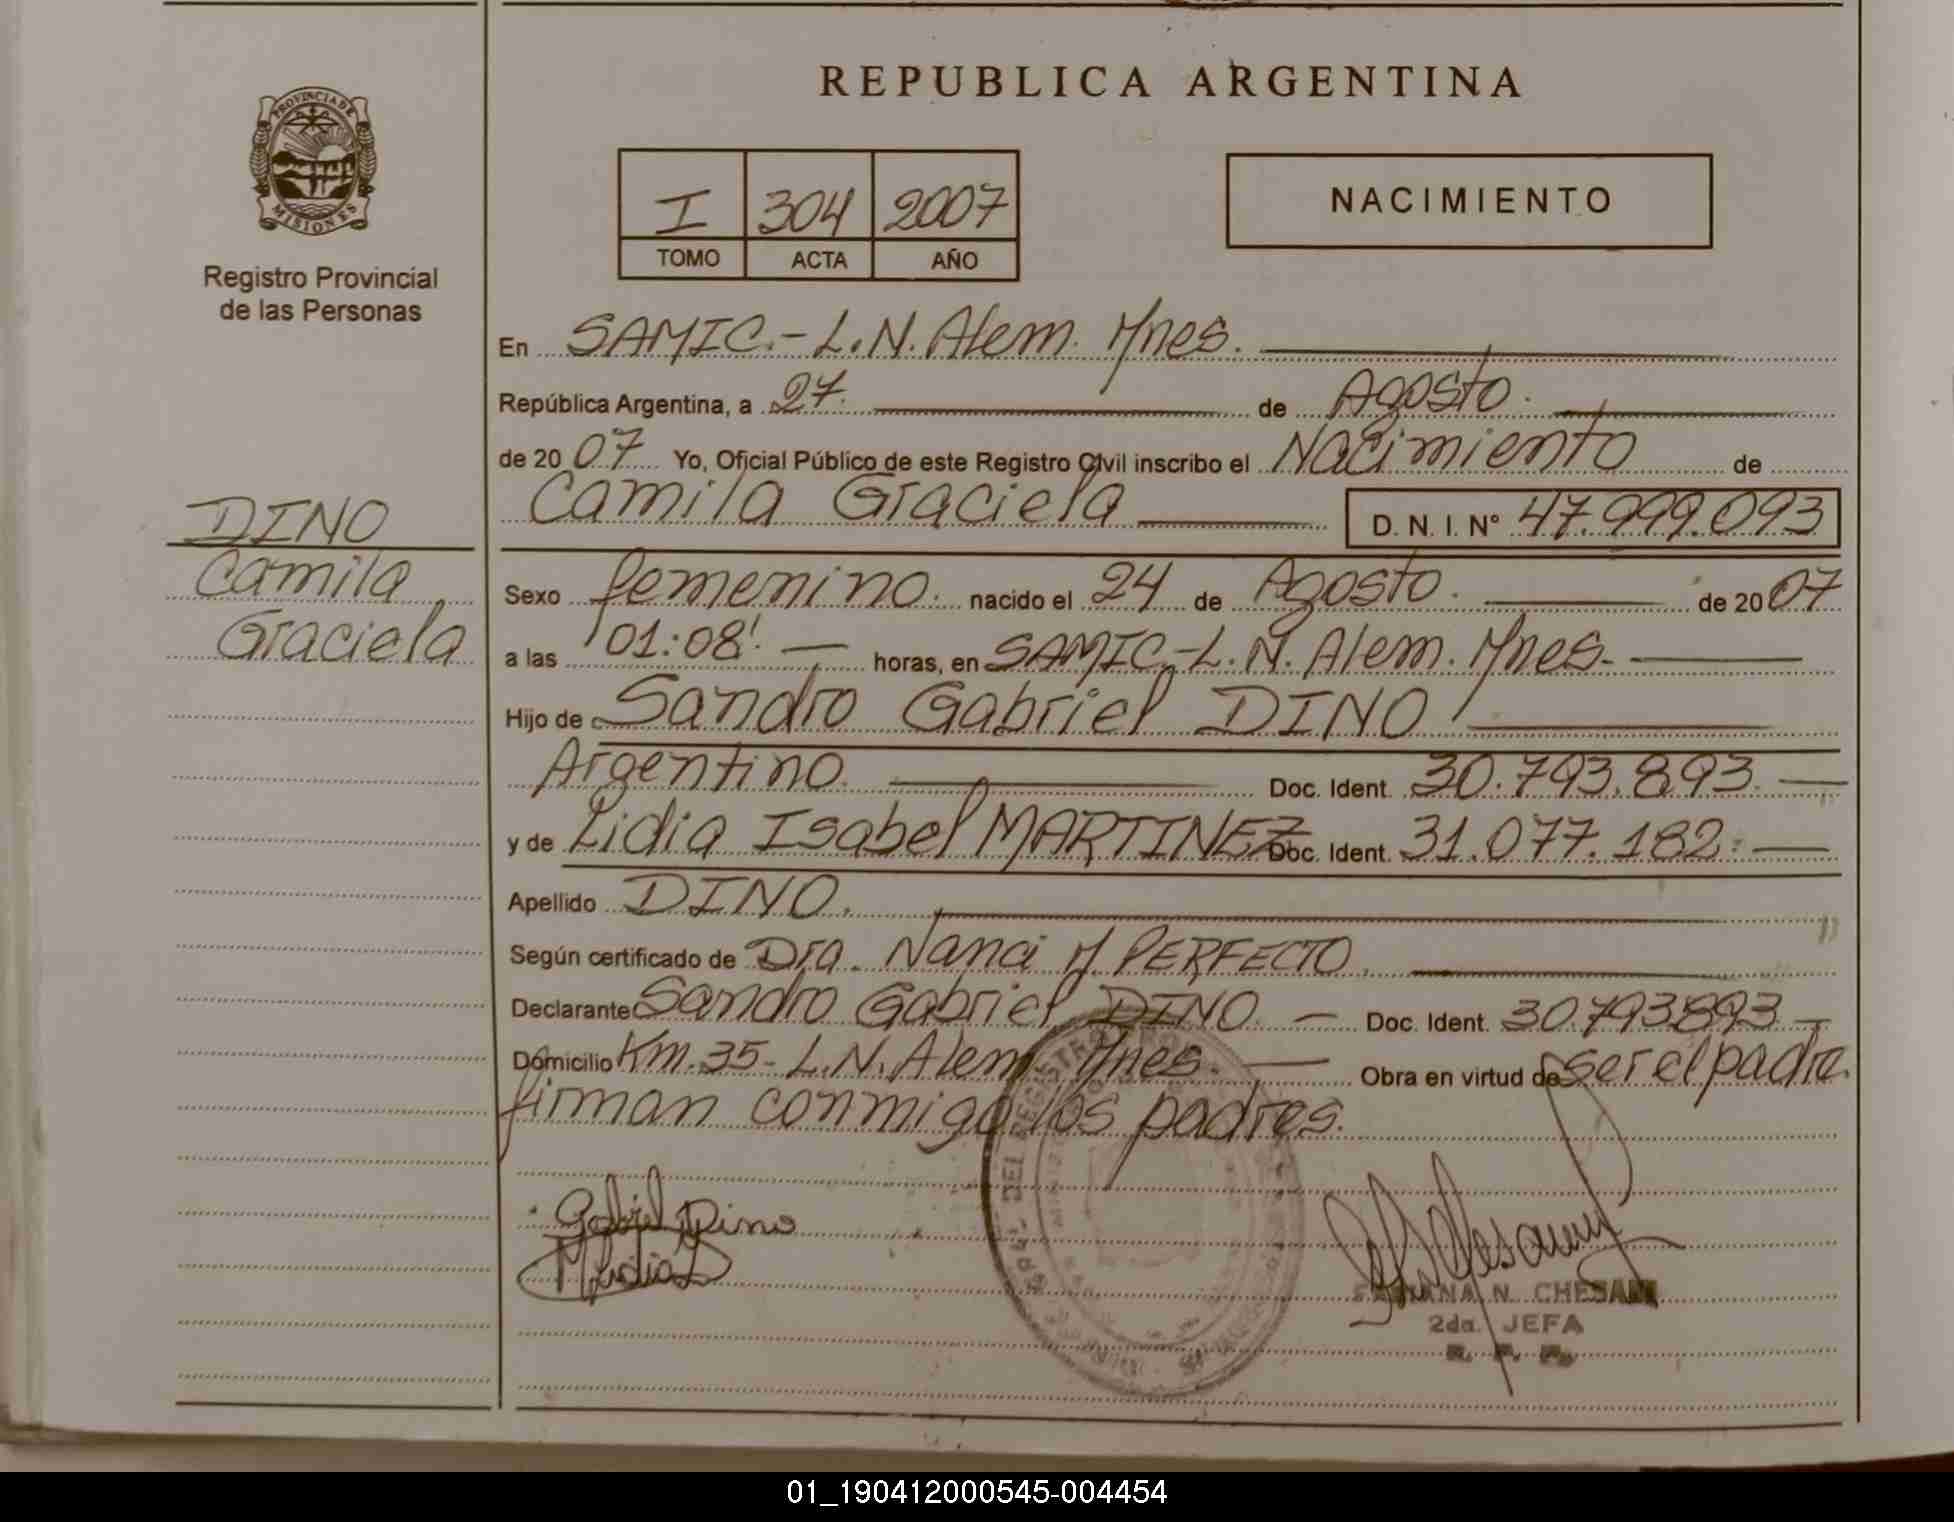 REPUBLICA ARGENTINA
PROVINCIA DE
MISIONES
Registro Provincial
de las Personas
I 304 2007
TOMO ACTA AÑO
NACIMIENTO
En SAMIC.- L.N. Alem. Mnes.
República Argentina, a 27. de Agosto.
de 2007 Yo, Oficial Público de este Registro Civil inscribo el Nacimiento de
Camila Graciela D. N. I. N° 47.999.093
DINO
Camila
Graciela
Sexo femenino. nacido el 24 de Agosto. de 2007
a las 01:08'. horas, en SAMIC.-L.N. Alem. Mnes.
Hijo de Sandro Gabriel DINO
Argentino. Doc. Ident. 30.793.893.
y de Lidia Isabel MARTINEZ Doc. Ident. 31.077.182.
Apellido DINO.
Según certificado de Dra. Nanci M. PERFECTO.
Declarante Sandro Gabriel DINO. Doc. Ident. 30.793893
Domicilio Km. 35- L.N. Alem Mnes. Obra en virtud de ser el padre.
firman conmigo los padres.
Gabriel Dino
M Lidia
N. CHESANI
2da. JEFA
R. P. P.
01_190412000545-004454